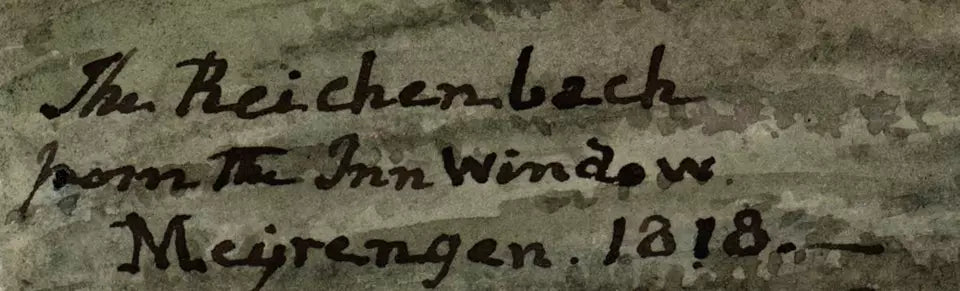 The Reichenbach
from The Inn Window.
Meyrengen. 1818. —